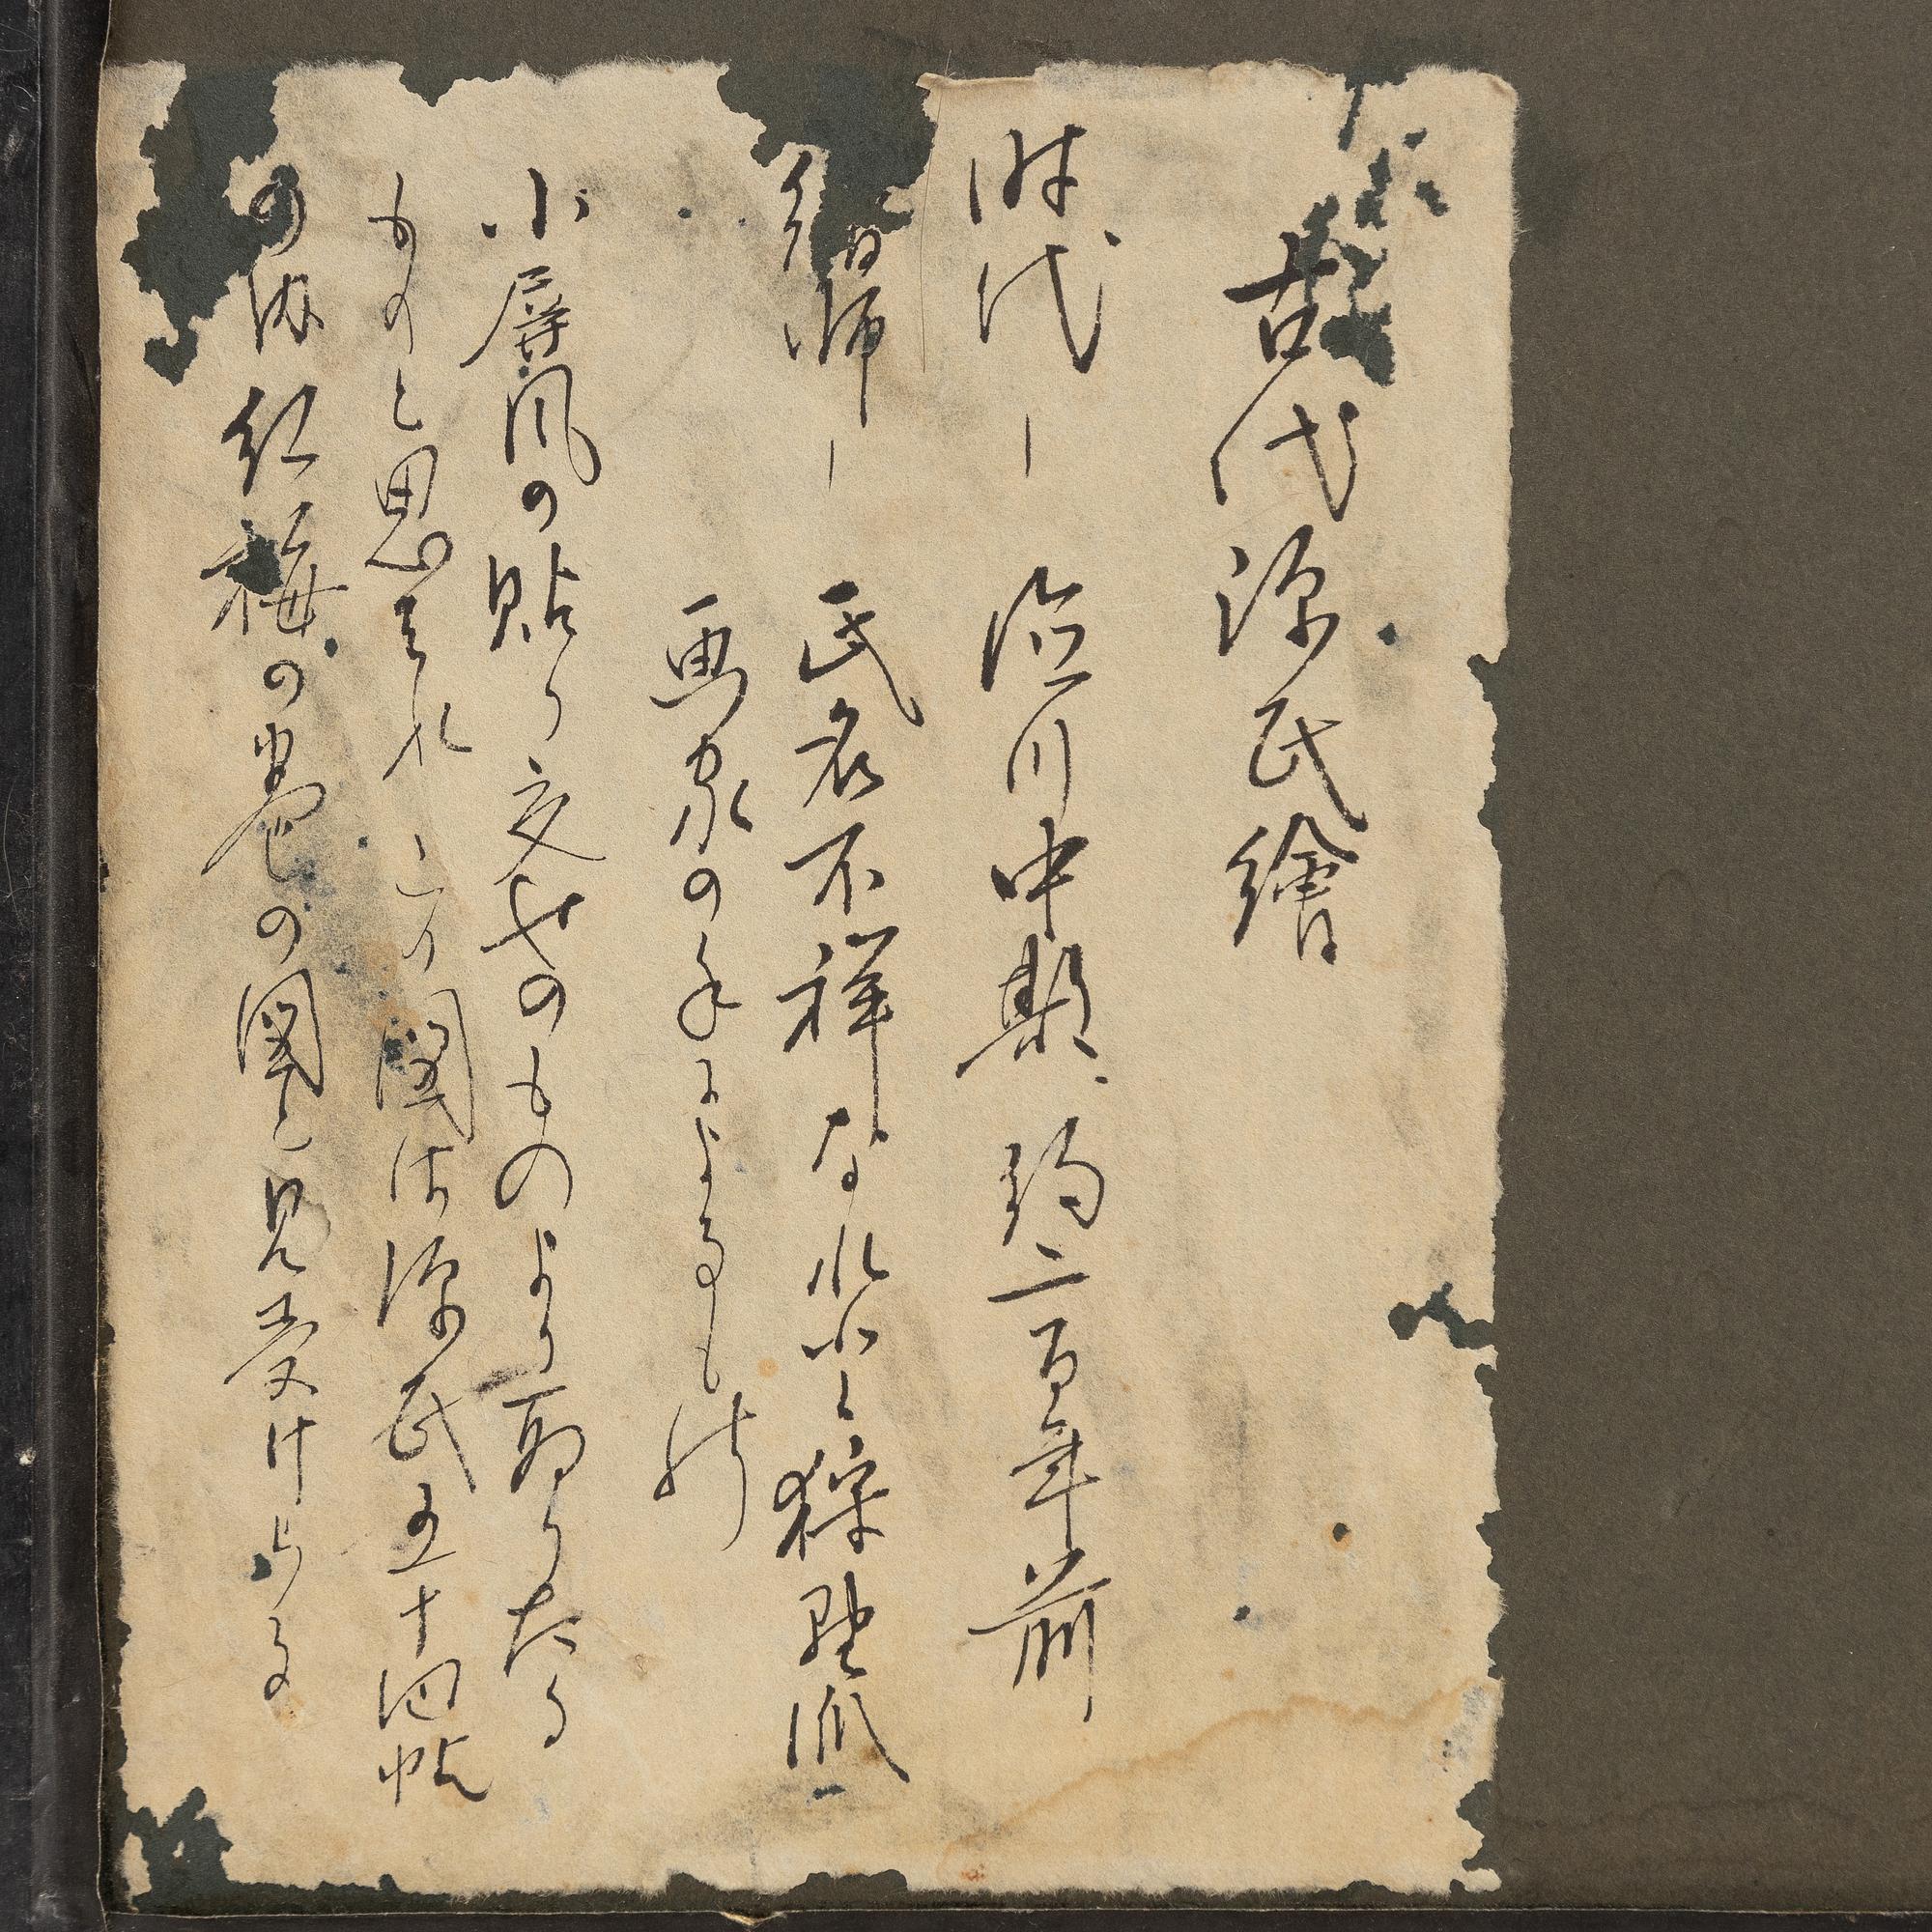 古代源氏繪
時代ー 徳川中期、約二百年前
繪師ー 氏名不祥なれ共狩野派
画家の手によるもの
小屏風の貼り交せのものより取りたる
ものと思はれ この図は源氏五十四帖
の内 紅梅の巻の図と見受けらる